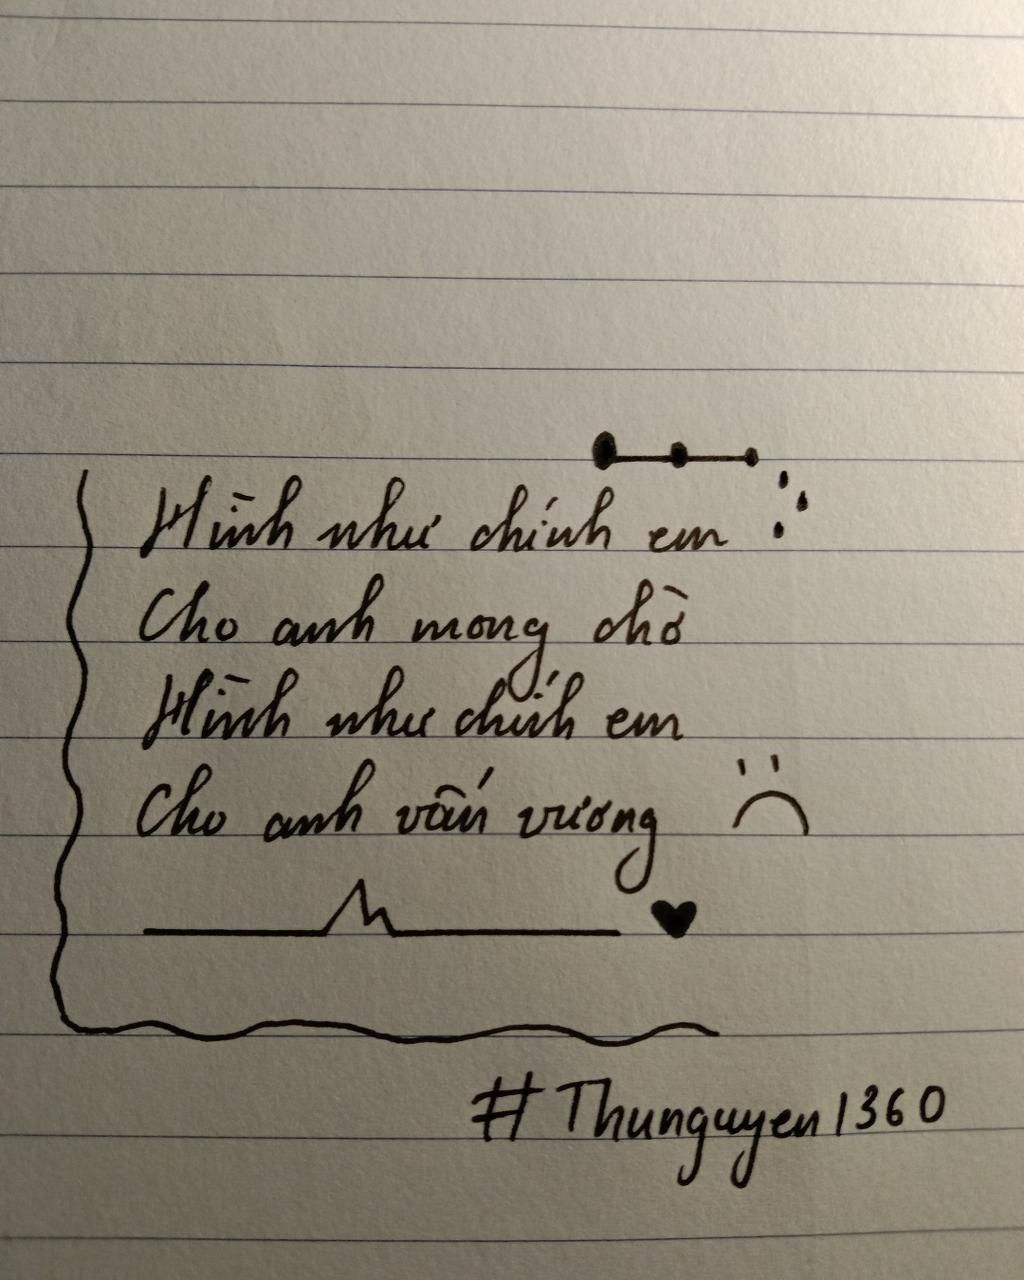 Hình như chính em
Cho anh mong chờ
Hình như chính em
Cho anh vấn vương
#Thunguyen1360